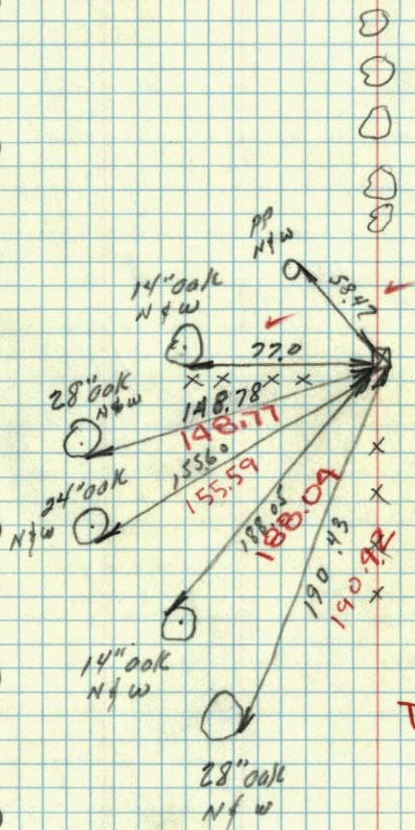 PP
N & W
58.47
14" oak
N & W
77.0
28" oak
N & W
148.78
148.77
24" oak
N & W
155.60
155.59
188.05
188.04
190.43
190.42
14" oak
N & W
28" oak
N & W
T